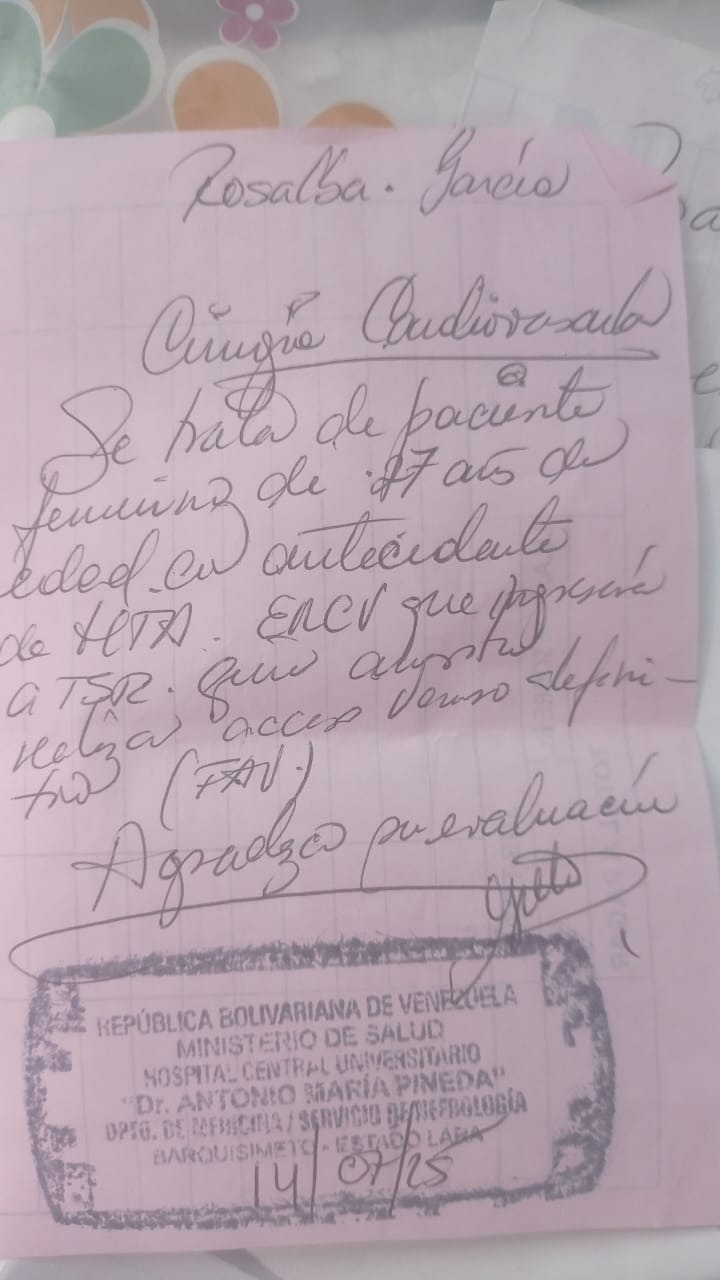 Rosalba. García
Cirugía Cardiovascular
Se trata de paciente
femenina de 27 años de
edad con antecedente
de HTA. ERCV que ingresará
a TSR. quien amerita
realizar acceso venoso defini-
tivo (FAV.)
Agradezco su evaluación
REPÚBLICA BOLIVARIANA DE VENEZUELA
MINISTERIO DE SALUD
HOSPITAL CENTRAL UNIVERSITARIO
"Dr. ANTONIO MARÍA PINEDA"
DPTO. DE MEDICINA / SERVICIO DE NEFROLOGÍA
BARQUISIMETO - ESTADO LARA
14/07/25
TOTAL A PAGAR